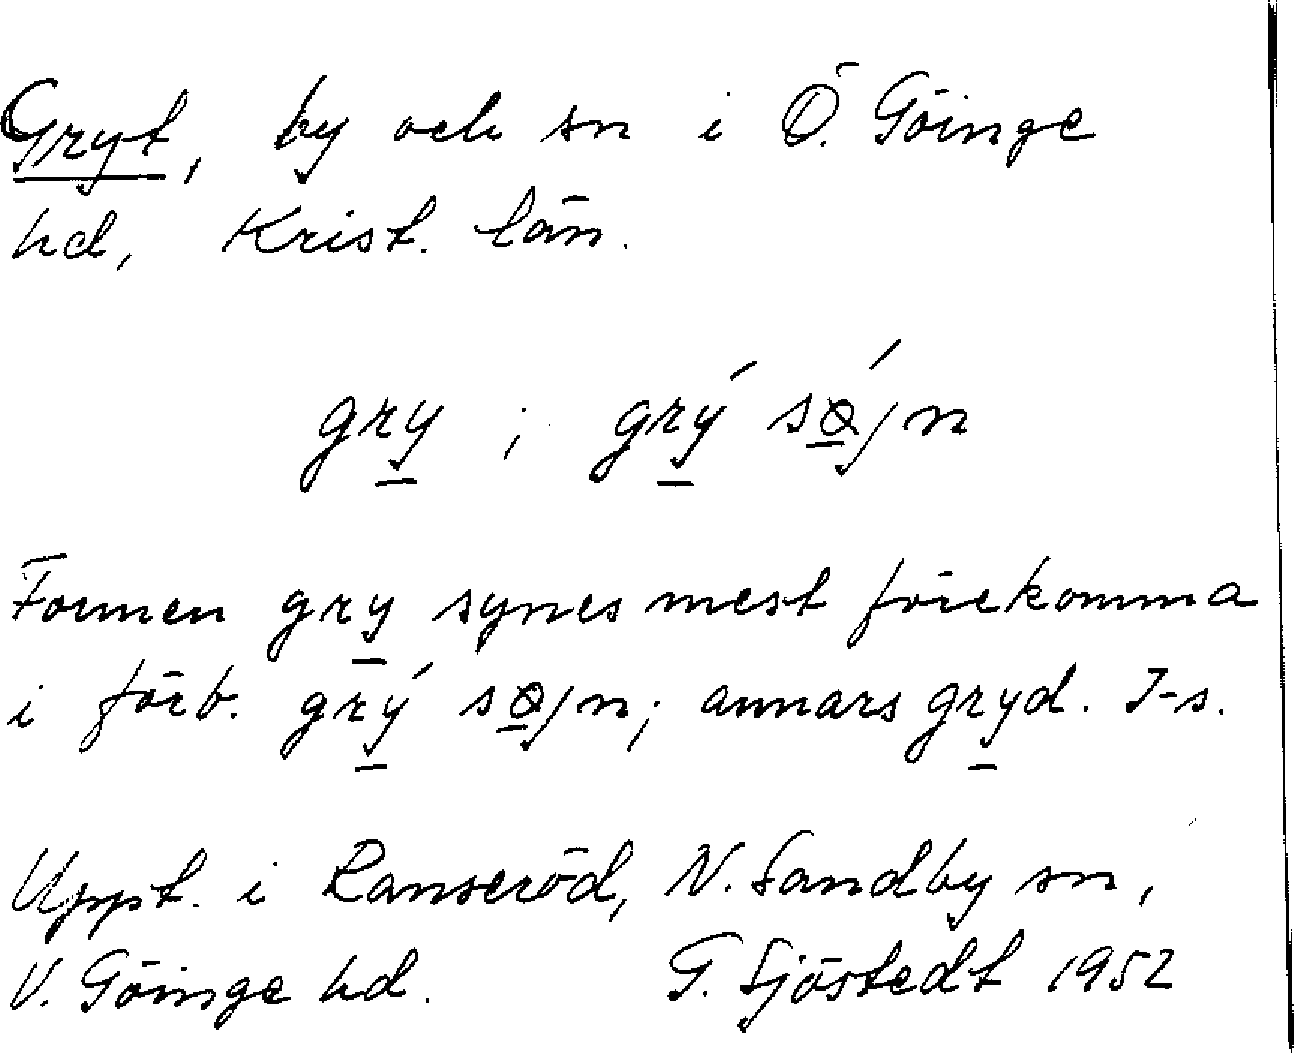 Gryt, by och sn i Ö. Göinge
hd, Krist. län.
gry̲ ; grý̲ sǿ̲jn
Formen gry̲ synes mest förekomma
i förb. grý̲ sø̲jn; annars gry̲d. I-s.
Uppt. i Ranseröd, N. Sandby sn,
V. Göinge hd. G. Sjöstedt 1952